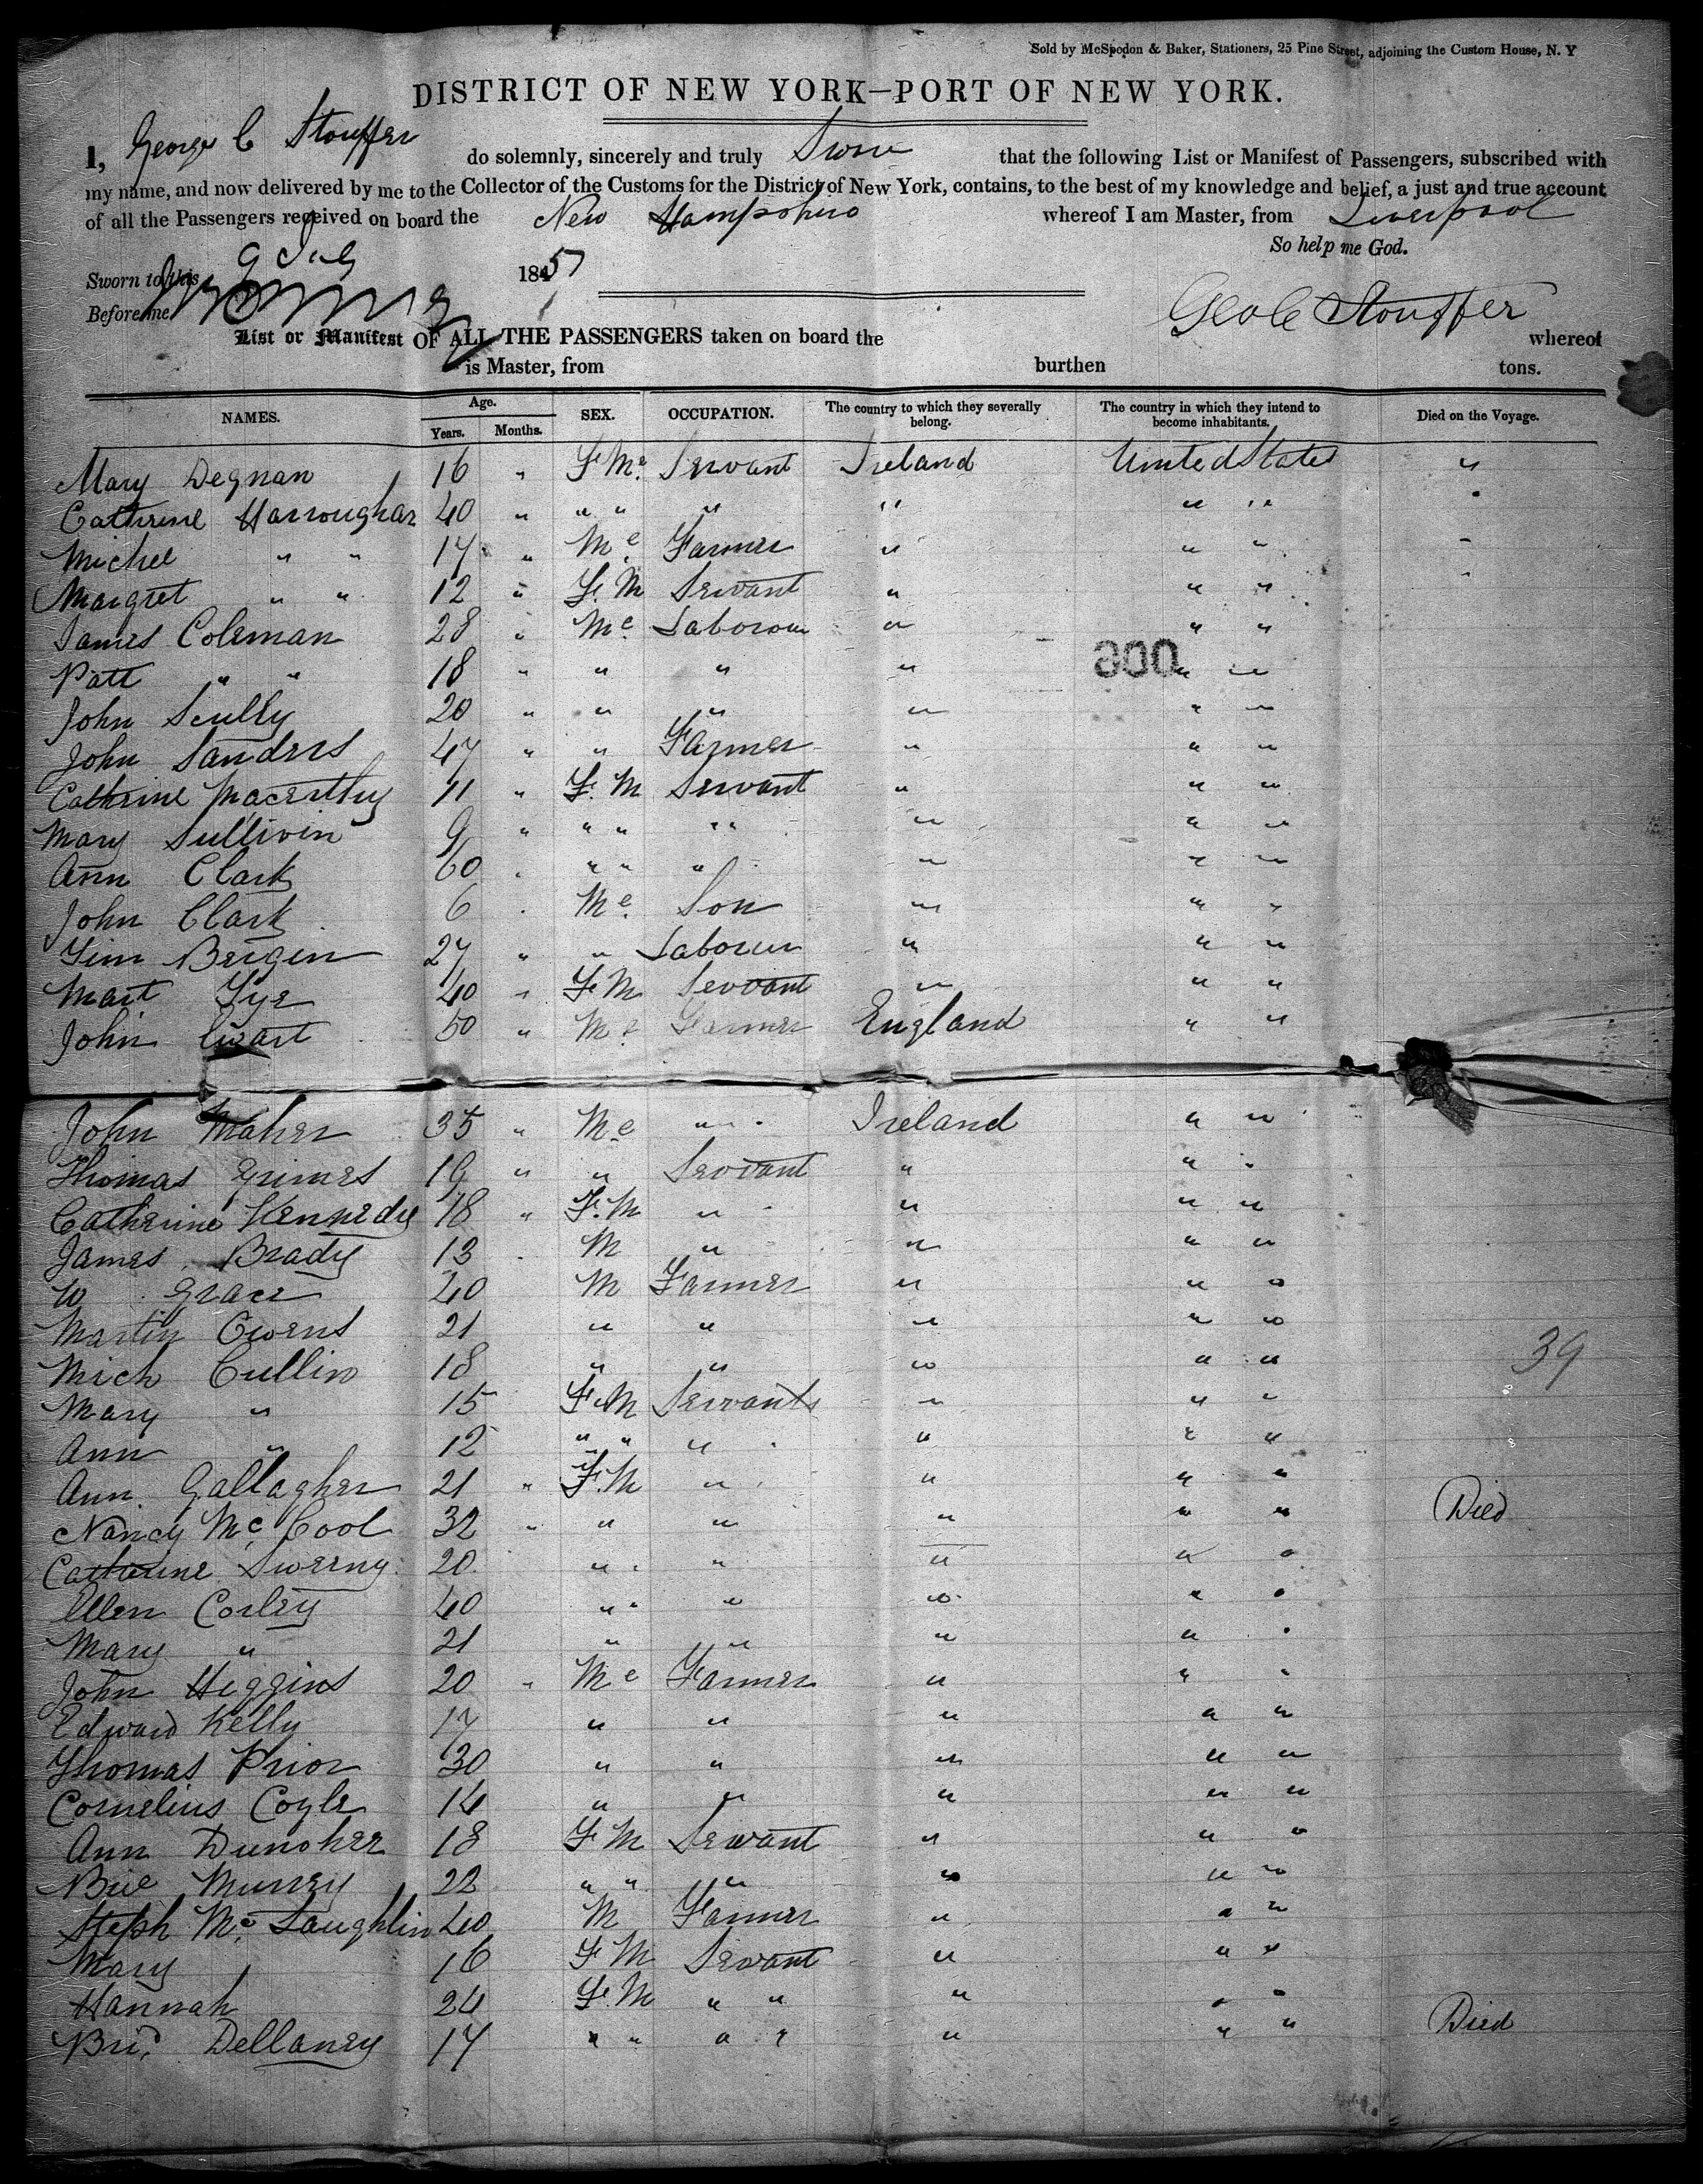 Sold by McSpedon & Baker, Stationers, 25 Pine Street, adjoining the Custom House, N. Y
DISTRICT OF NEW YORK—PORT OF NEW YORK.
I, George C Stouffer do solemnly, sincerely and truly Swear that the following List or Manifest of Passengers, subscribed with
my name, and now delivered by me to the Collector of the Customs for the District of New York, contains, to the best of my knowledge and belief, a just and true account
of all the Passengers received on board the New Hampshire whereof I am Master, from Liverpool
So help me God.
Sworn to this 9 184
Before me Geo C Stouffer
List or Manifest OF ALL THE PASSENGERS taken on board the whereof
is Master, from burthen tons.
NAMES. Age. Years. Months. SEX. OCCUPATION. The country to which they severally belong. The country in which they intend to become inhabitants. Died on the Voyage.
Mary Degnan 16 " F Me. Servant Ireland United States "
Cathrine Harroughan 40 " " " " " " "
Michel " " 17 " Me. Farmer " " "
Margret " " 12 " F. M Servant " " "
James Coleman 28 " Me. Labourer " " "
Patt " " 18 " " " " " "
600
John Scully 20 " " " " " "
John Sanders 47 " " Farmer " " "
Cathrine Macerthy 11 " F. M Servant " " "
Mary Sullivin 9 " " " " " " " "
Ann Clark 60 " " " " " " "
John Clark 6 " Me. Son " " "
Tim Bergin 27 " " Labourer " " "
Mart Tye 40 " F M Servant " " "
John Ewart 50 " Me Farmer England " "
John Maher 35 " Me " Ireland " "
Thomas Grimes 19 " " Servant " " "
Catherine Kennedy 18 " F. M " " " "
James Brady 13 M " " " "
W Grace 40 M Farmer " " "
Martin Owens 21 " " " " "
Mich Cullin 18 " " " " "
39
Mary " 15 F M Servants " " "
Ann " 12 " " " " " "
Ann Gallagher 21 " F. M " " " "
Nancy McCool 32 " " " " " " Died
Catherine Sweeny 20 " " " " "
Ellen Corley 40 " " " " "
Mary " 21 " " " " "
John Higgins 20 " Me Farmer " " "
Edward Kelly 17 " " " " "
Thomas Prior 30 " " " " "
Cornelius Coyle 14 " " " " "
Ann Dunoher 18 F M Servant " " "
Murrey 22 " " " " " "
Steph McLaughlin 40 M Farmer " " "
Mary 16 F M Servant " " "
Hannah 24 F. M " " " " "
Brid Dellaney 17 " " " " " " " Died